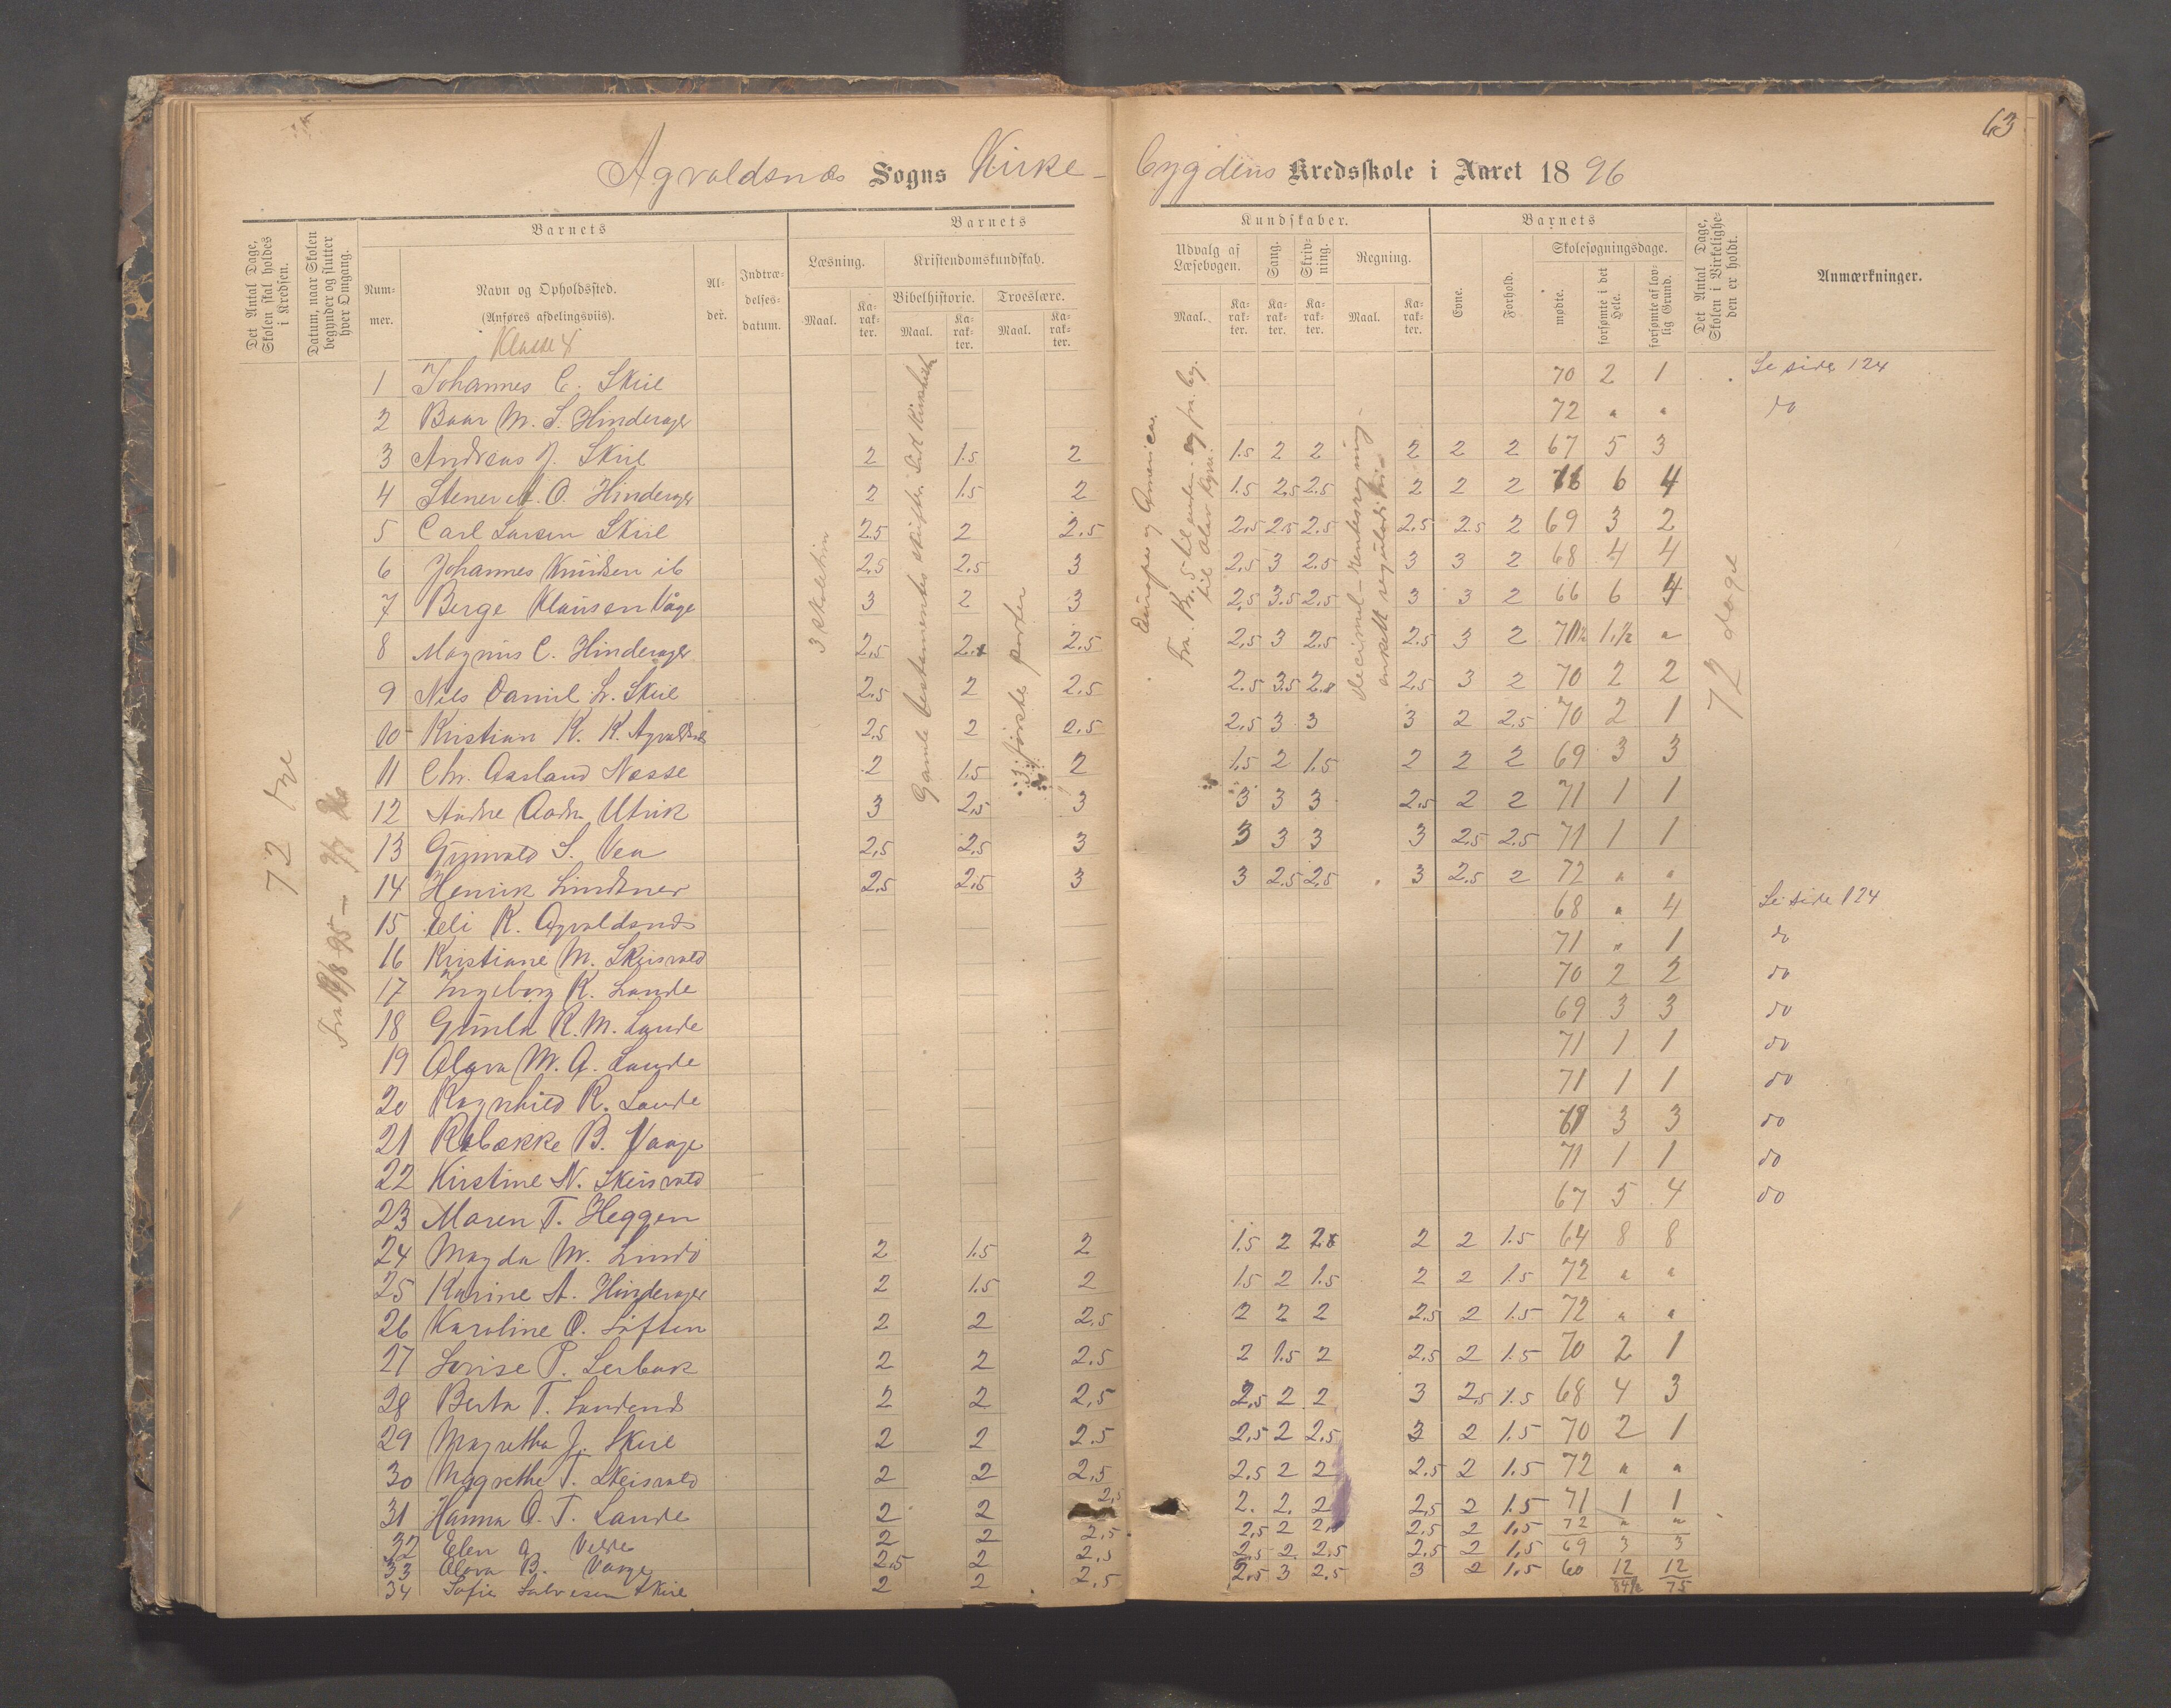 63
Agvaldsnæs Sogns Kirke-
bygdens Kredsskole i Aaret 1896
Det Antal Dage, Skolen skal holdes i Kredsen.
Datum, naar Skolen begynder og slutter hver Omgang.
Barnets
Nummer.
Navn og Opholdssted.
(Anføres afdelingsviis).
Klasse
Alder.
Indtrædelsesdatum.
Barnets
Læsning.
Maal.
Karakter.
Kristendomskundskab.
Bibelhistorie.
Maal.
Karakter.
Troeslære.
Maal.
Karakter.
Kundskaber.
Udvalg af Læsebogen.
Maal.
Karakter.
Sang.
Karakter.
Skrivning.
Karakter.
Regning.
Maal.
Karakter.
Barnets
Evne.
Forhold.
Skolesøgningsdage.
mødte.
forsømte i det Hele.
forsømte af lovlig Grund.
Det Antal Dage, Skolen i Virkeligheden er holdt.
Anmærkninger.
72
72 dage
3 skoletrin
Europa og Amerika
1 Johannes C. Skeie 70 2 1 Se side 124
2 Baar M. S. Hinderager 72 " " do
3 Andreas J. Skeie 2 1.5 2 1.5 2 2 2 2 2 67 5 3
4 Stener A. O. Hinderager 2 1.5 2 1.5 2.5 2.5 2 2 2 6 4
5 Carl Larsen Skeie 2.5 2 2.5 2.5 2.5 2.5 2.5 2.5 2 69 3 2
6 Johannes Knudsen ib 2.5 2.5 3 2.5 3 2.5 3 3 2 68 4 4
7 Berge Klausen Våge 3 2 3 2.5 3.5 2.5 3 3 2 66 6 4
8 Magnus C. Hinderager 2.5 2.5 2.5 3 2.5 2.5 3 2 "
9 Nils Daniel L. Skeie 2.5 2 2.5 2.5 3.5 2.5 3 2 70 2 2
10 Kristian K. K. Agvaldsnæs 2.5 2 2.5 2.5 3 3 3 2 2.5 70 2 1
11 Chr. Aarland Næsse 2 1.5 2 1.5 2 1.5 2 2 2 69 3 3
12 Andre Utvik 3 2.5 3 3 3 3 2.5 2 2 71 1 1
13 Gunvald S. Vea 2.5 2.5 3 3 3 3 3 2.5 2.5 71 1 1
14 Henrik Lindtner 2.5 2.5 3 3 2.5 2.5 3 2.5 2 72 " "
15 Eli K. Agvaldsnæs 68 " 4 Se side 124
16 Kristiane M. Skeisvold 71 " 1 do
17 Ingeborg K. Lande 70 2 2 do
18 Gunla R. M. Lande 69 3 3 do
19 Olava M. A. Lande 71 1 1 do
20 Ragnhild R. Lande 71 1 1 do
21 Rebække B. Vaage 3 3 do
22 Kirstine N. Skeisvold 71 1 1 do
23 Maren T. Heggen 67 5 4 do
24 Magda M. Lindø 2 1.5 2 1.5 2 2 2 1.5 64 8 8
25 Karine A. Hinderager 2 1.5 2 1.5 2 1.5 2 2 1.5 72 " "
26 Karoline O. Løften 2 2 2.5 2 2 2 2.5 2 1.5 72 " "
27 Lovise P. Lerbak 2 2 2.5 2 1.5 2 2.5 2 1.5 70 2 1
28 Berta T. Sandenes 2 2 2.5 2.5 2 2 3 2.5 1.5 68 4 3
29 Magretha J. Skeie 2 2 2.5 2.5 2 2.5 3 2 1.5 70 2 1
30 Magrethe T. Skeisvold 2 2 2.5 2.5 2 2 2.5 2 1.5 72 " "
31 Hanna O. T. Lande 2 2 2.5 2. 2. 2 2.5 2 1.5 71 1 1
32 Elen A. 2 2 2.5 2.5 2 2.5 2 1.5 72 " "
33 Olava B. Vaage 2.5 2 2.5 2.5 2 2.5 2.5 2 1.5 69 3 3
34 Sofie Salvesen Skeie 2 2 2.5 2.5 3 2.5 3 2 1.5 60 12 12
84½ 75